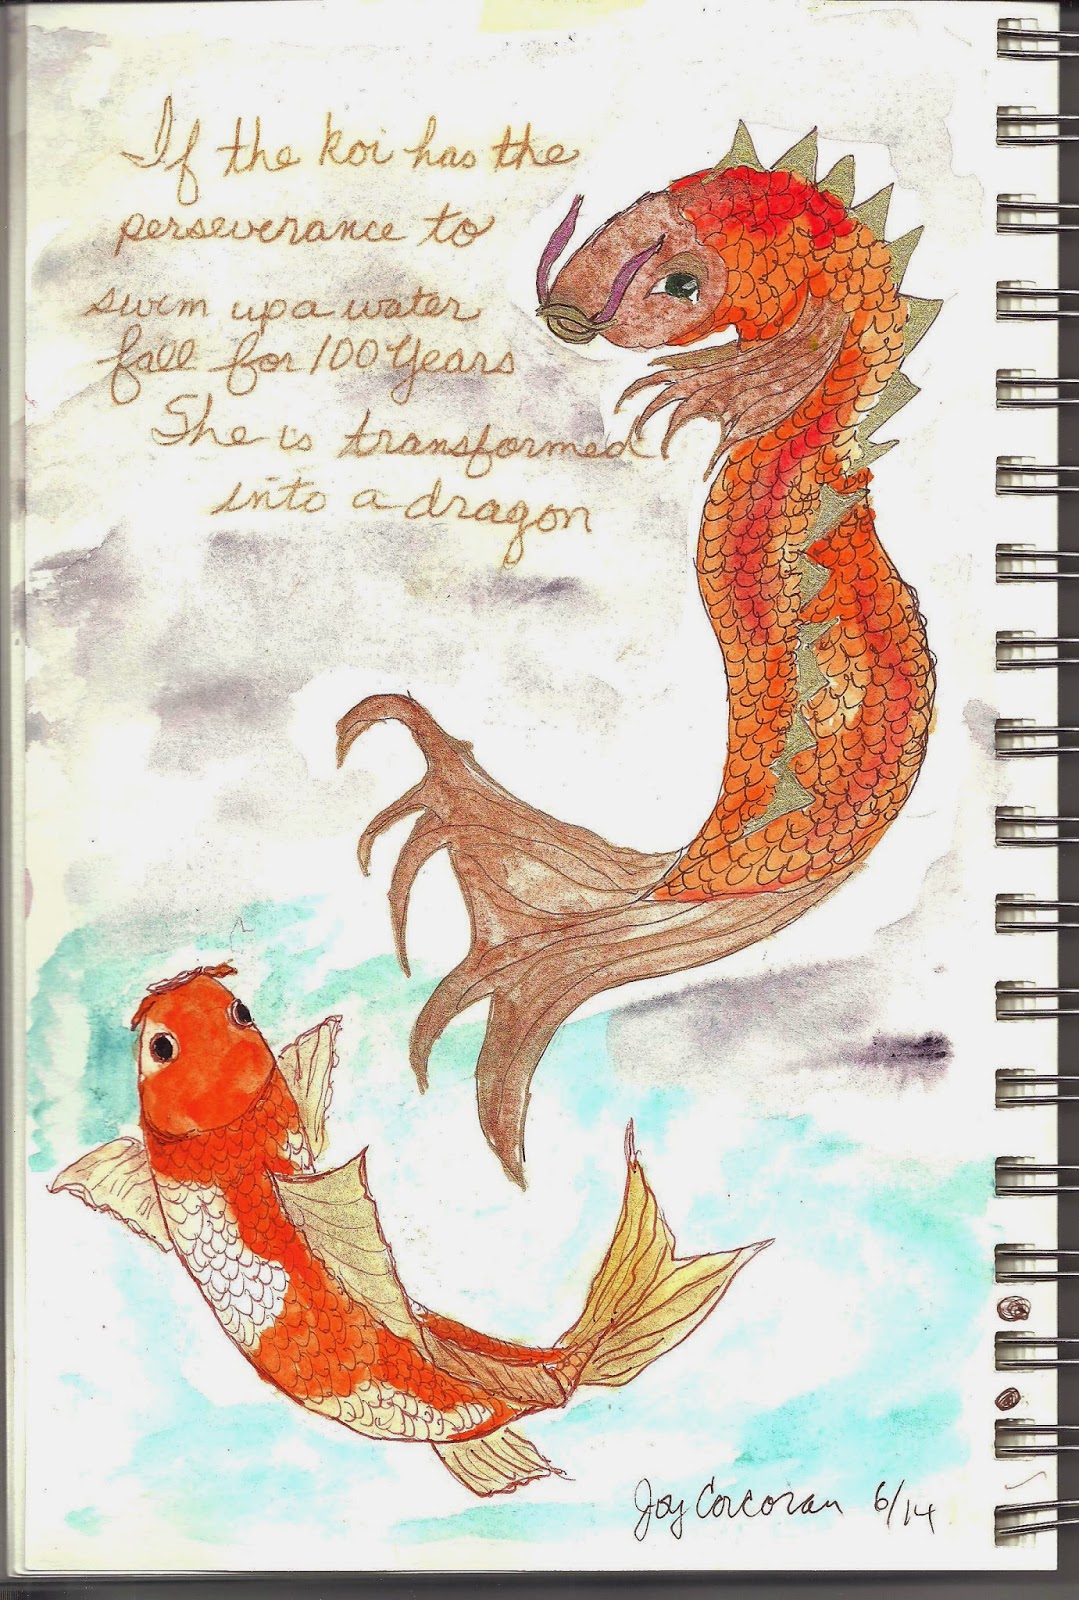 If the koi has the
perseverance to
swim up a water
fall for 100 Years
She is transformed
into a dragon
Joy Corcoran 6/14